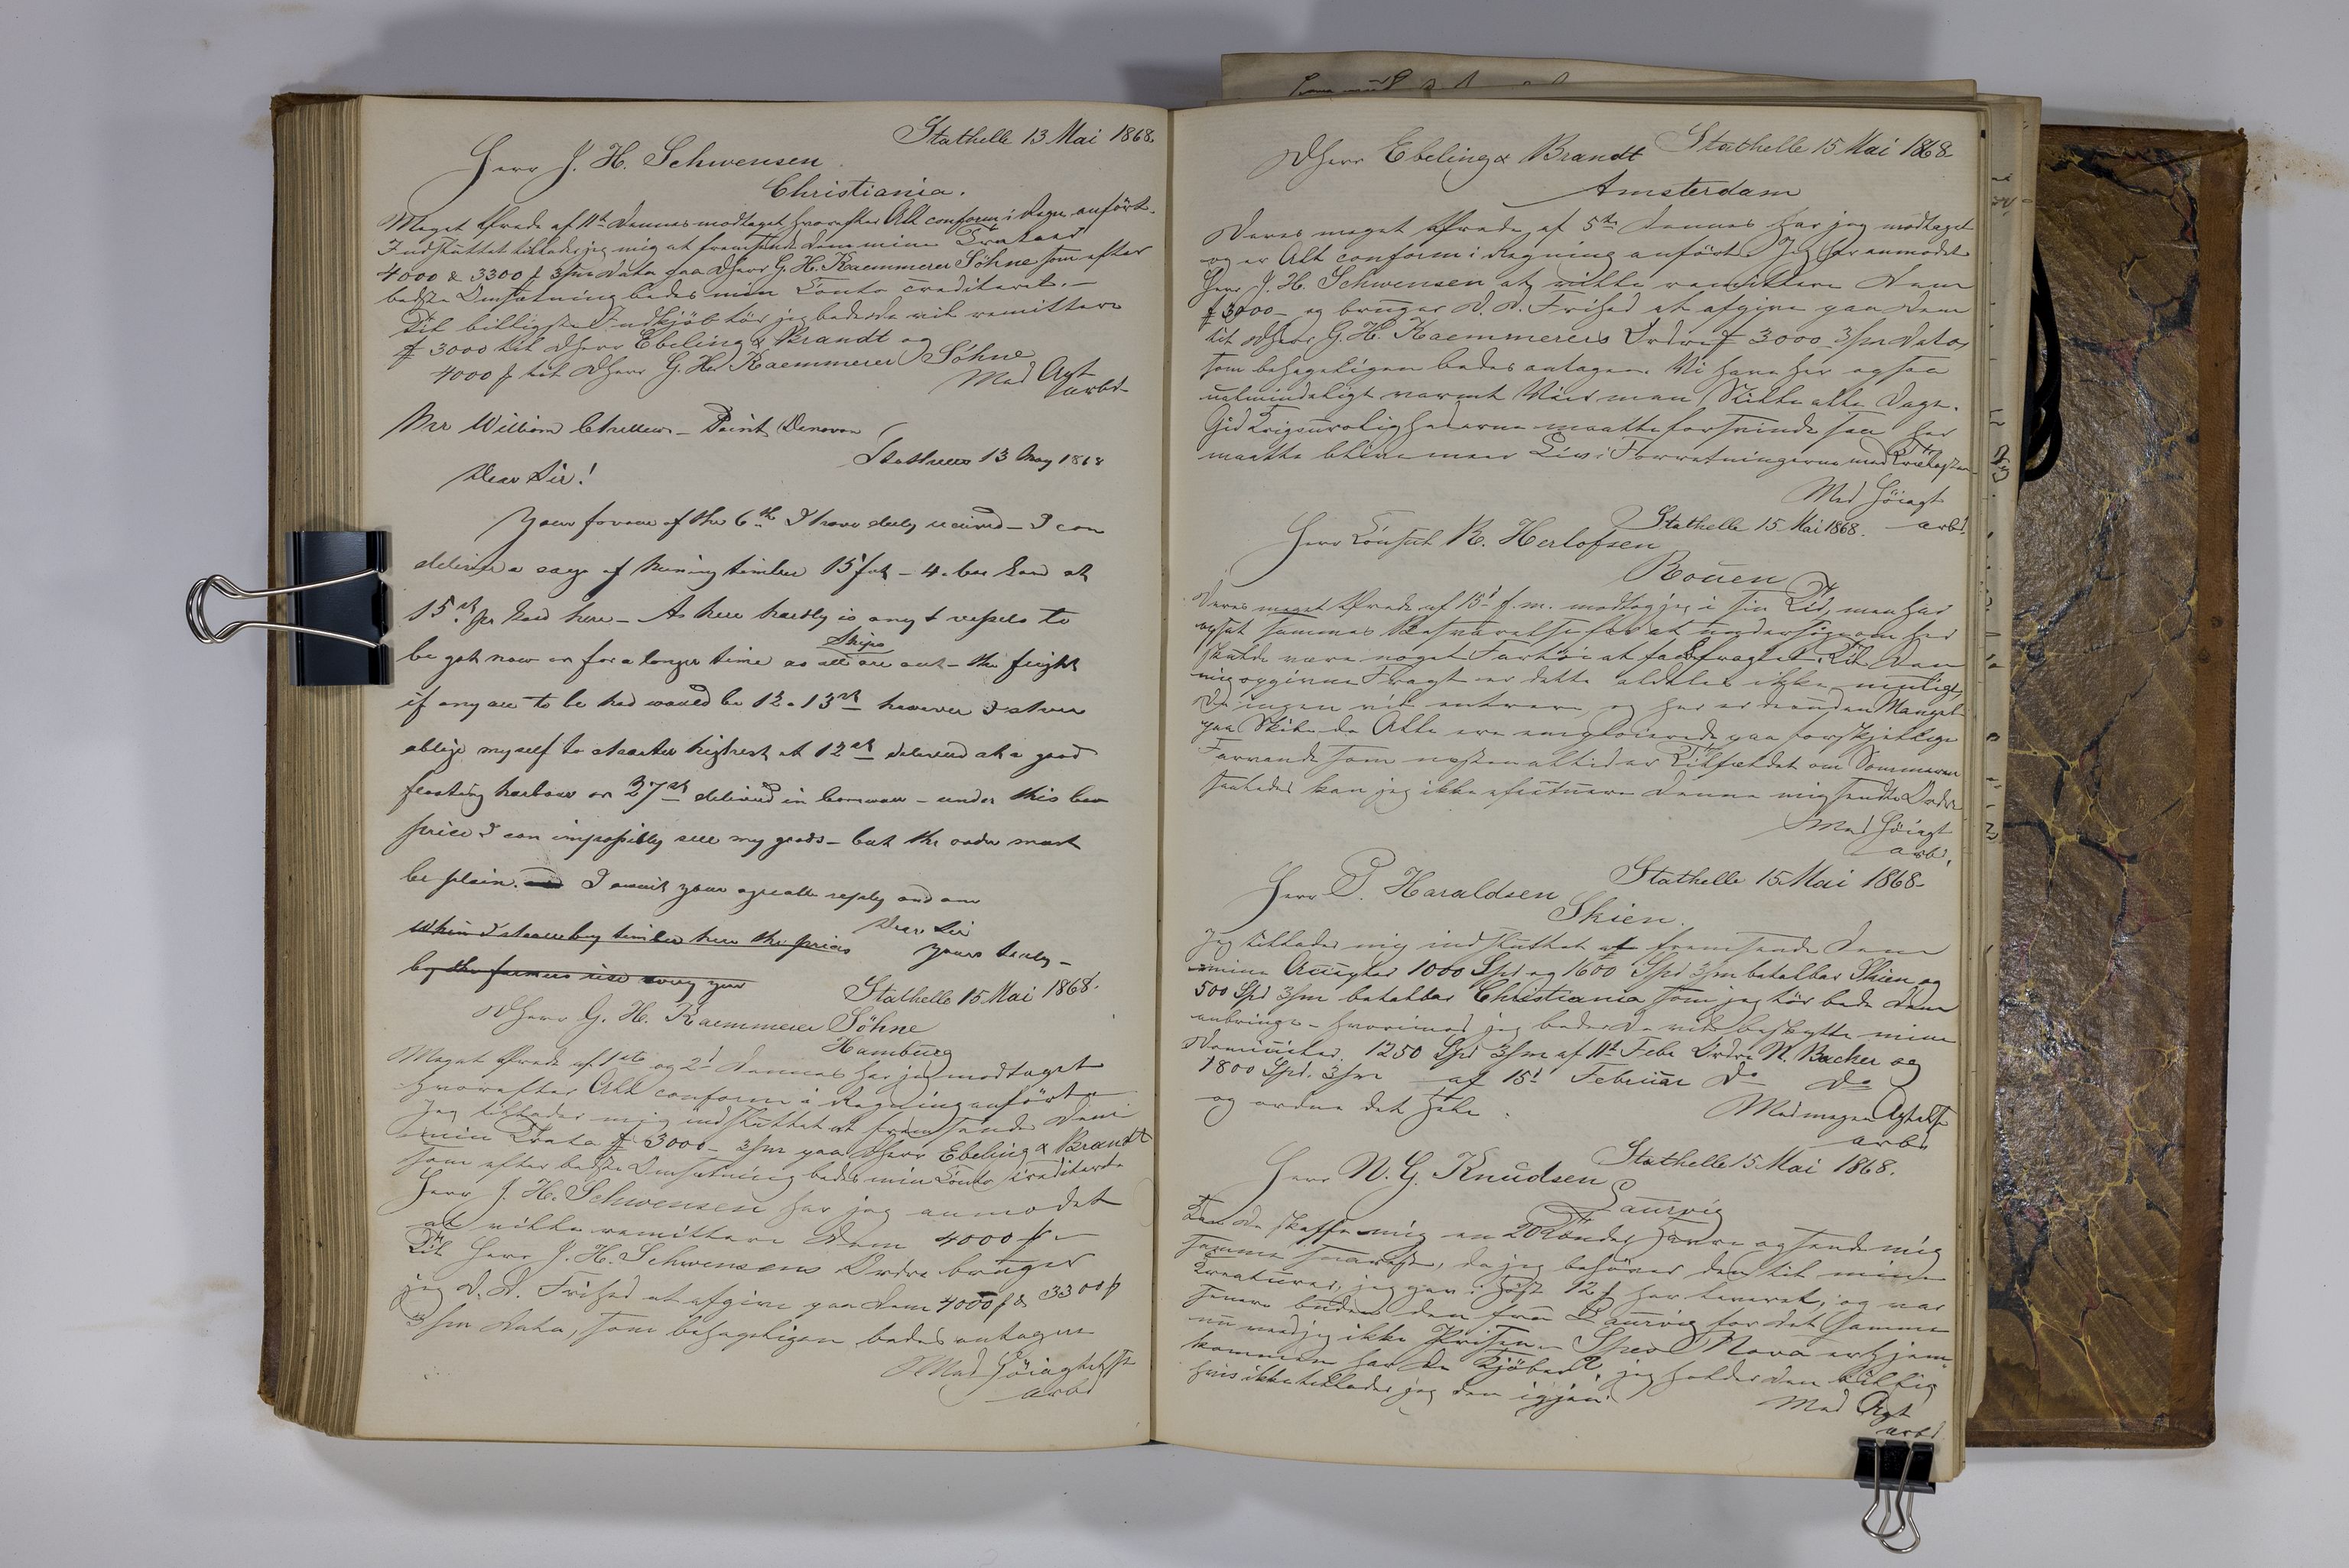 Stathelle 13 Mai 1868.
Herr J. H. Schwensen
Christiania.
Meget Ærede af 11t dennes modtaget hvorefter Alt conform i Regn. anført.
Indsluttet tillader jeg mig at fremsende Dem mine Tratter
4000 & 3300 ƒ 3/m Dato paa DHerr G. H. Kaemmerer Söhne som efter
bedste Omsætning bedes min Conto crediteret. —
Til billigste Indkjöb tör jeg bede De vil remittere
ƒ 3000 til DHerr Ebeling & Brandt og
4000 ƒ til DHerr G. H. Kaemmerer Söhne
Med Agt
arbd
Mr William Point Devoran
Stathelle 13 May 1868
Dear Sir!
Your favour of the 6th I have duly received – I can
deliver a cargo of Mining timber 15 fot – 4. at
15 sh pr load here – As here hardly is any vessels to
be got now or for a longer time as all Ships are out – the freight
if any are to be had would be 12 a 13 sh – however I shall
oblige myself to charter highest at 12 sh delivered at a good
floating harbour or 27 sh delivered in Cornwall – under this low
price I can impossibly sell my goods – but the order must
be plain. and I await your agreable reply and am
Dear Sir
When I shall buy timber here the prices yours truly –
by the farmers rise every year
Stathelle 15 Mai 1868.
DHerr G. H. Kaemmerer Söhne
Hamburg
Meget Ærede af 1ste og 2d dennes har jeg modtaget
hvorefter Alt conform i Regning anført.
Jeg tillader mig indsluttet at fremsende Dem
min Tratta ƒ 3000 – 3/m paa DHerr Ebeling & Brandt
som efter bedste Omsætning bedes min Conto crediteret.
Herr J. H. Schwensen har jeg anmodet
at ville remittere Dem 4000 ƒ –
Til Herr J. H. Schwensens Ordre bruger
jeg D. D. Frihed at afgive paa Dem 4000 ƒ & 3300 ƒ
3/m Dato, som behageligen bedes antagen
Med Höiagtelse
arbd
Stathelle 15 Mai 1868
DHerr Ebeling & Brandt
Amsterdam
Deres meget Ærede af 5te dennes har jeg modtaget
og er Alt conform i Regning anført. Jeg har anmodet
Herr J. H. Schwensen at ville remittere Dem
ƒ 3000 – og bruger D. D. Frihed at afgive paa Dem
til DHerr G. H. Kaemmerers Ordre ƒ 3000 3/m Dato,
som behageligen bedes antagen. Vi have her ogsaa
ualmindeligt varmt Veir men Stille alle Dage.
Gid Krigsurolighederne maatte forsvinde saa her
maatte blive mere Liv i Forretningerne med
Med Höiagt
arbd.
Stathelle 15 Mai 1868.
Herr Consul R. Herlofsen
Rouen
Deres meget Ærede af 15d f. m. modtog jeg i sin Tid, men har
opsat sammes Besvarelse for at undersöge om her
skulde være noget Fartöi at faa fragtet. Til den
mig opgivne Fragt er dette aldeles ikke muligt,
da ingen vil entrere, og her er desuden Mangel
paa Skibe da Alle ere employerede paa forskjellige
Farvande som næsten altid er Tilfældet om Sommeren
saaledes kan jeg ikke efectuere denne mig sendte Ordre
Med Höiagt
arbd.
Stathelle 15 Mai 1868.
Herr P. Haraldsen
Skien.
Jeg tillader mig indsluttet at fremsende Dem
mine Accepter 1000 Spd og 1600 Spd 3/m betalbar Skien og
500 Spd 3/m betalbar Christiania som jeg tör bede Dem
anbringe – hvorimod jeg beder De vilde beskytte mine
Domicilier 1250 Spd 3/m af 11t Febr Ordre N. Backer og
1800 Spd. 3/m af 15d Februar Do Do
og ordne det Hele.
Med megen Agtelse
arbd.
Stathelle 15 Mai 1868.
Herr N. G. Knudsen
Laurvig
Kan De skaffe mig en 20 Tönder Havre og sende mig
samme snarest, da jeg behöver den til mine
Creaturer, jeg gav i Höst 12 ƒ her leveret, og var
senere buden den fra Laurvig for det samme
nu ved jeg ikke Prisen – Spes Nova er hjem-
kommen har De Kjöber? jeg holder den billig
hvis ikke tillader jeg den igjen.
Med Agt
arbd